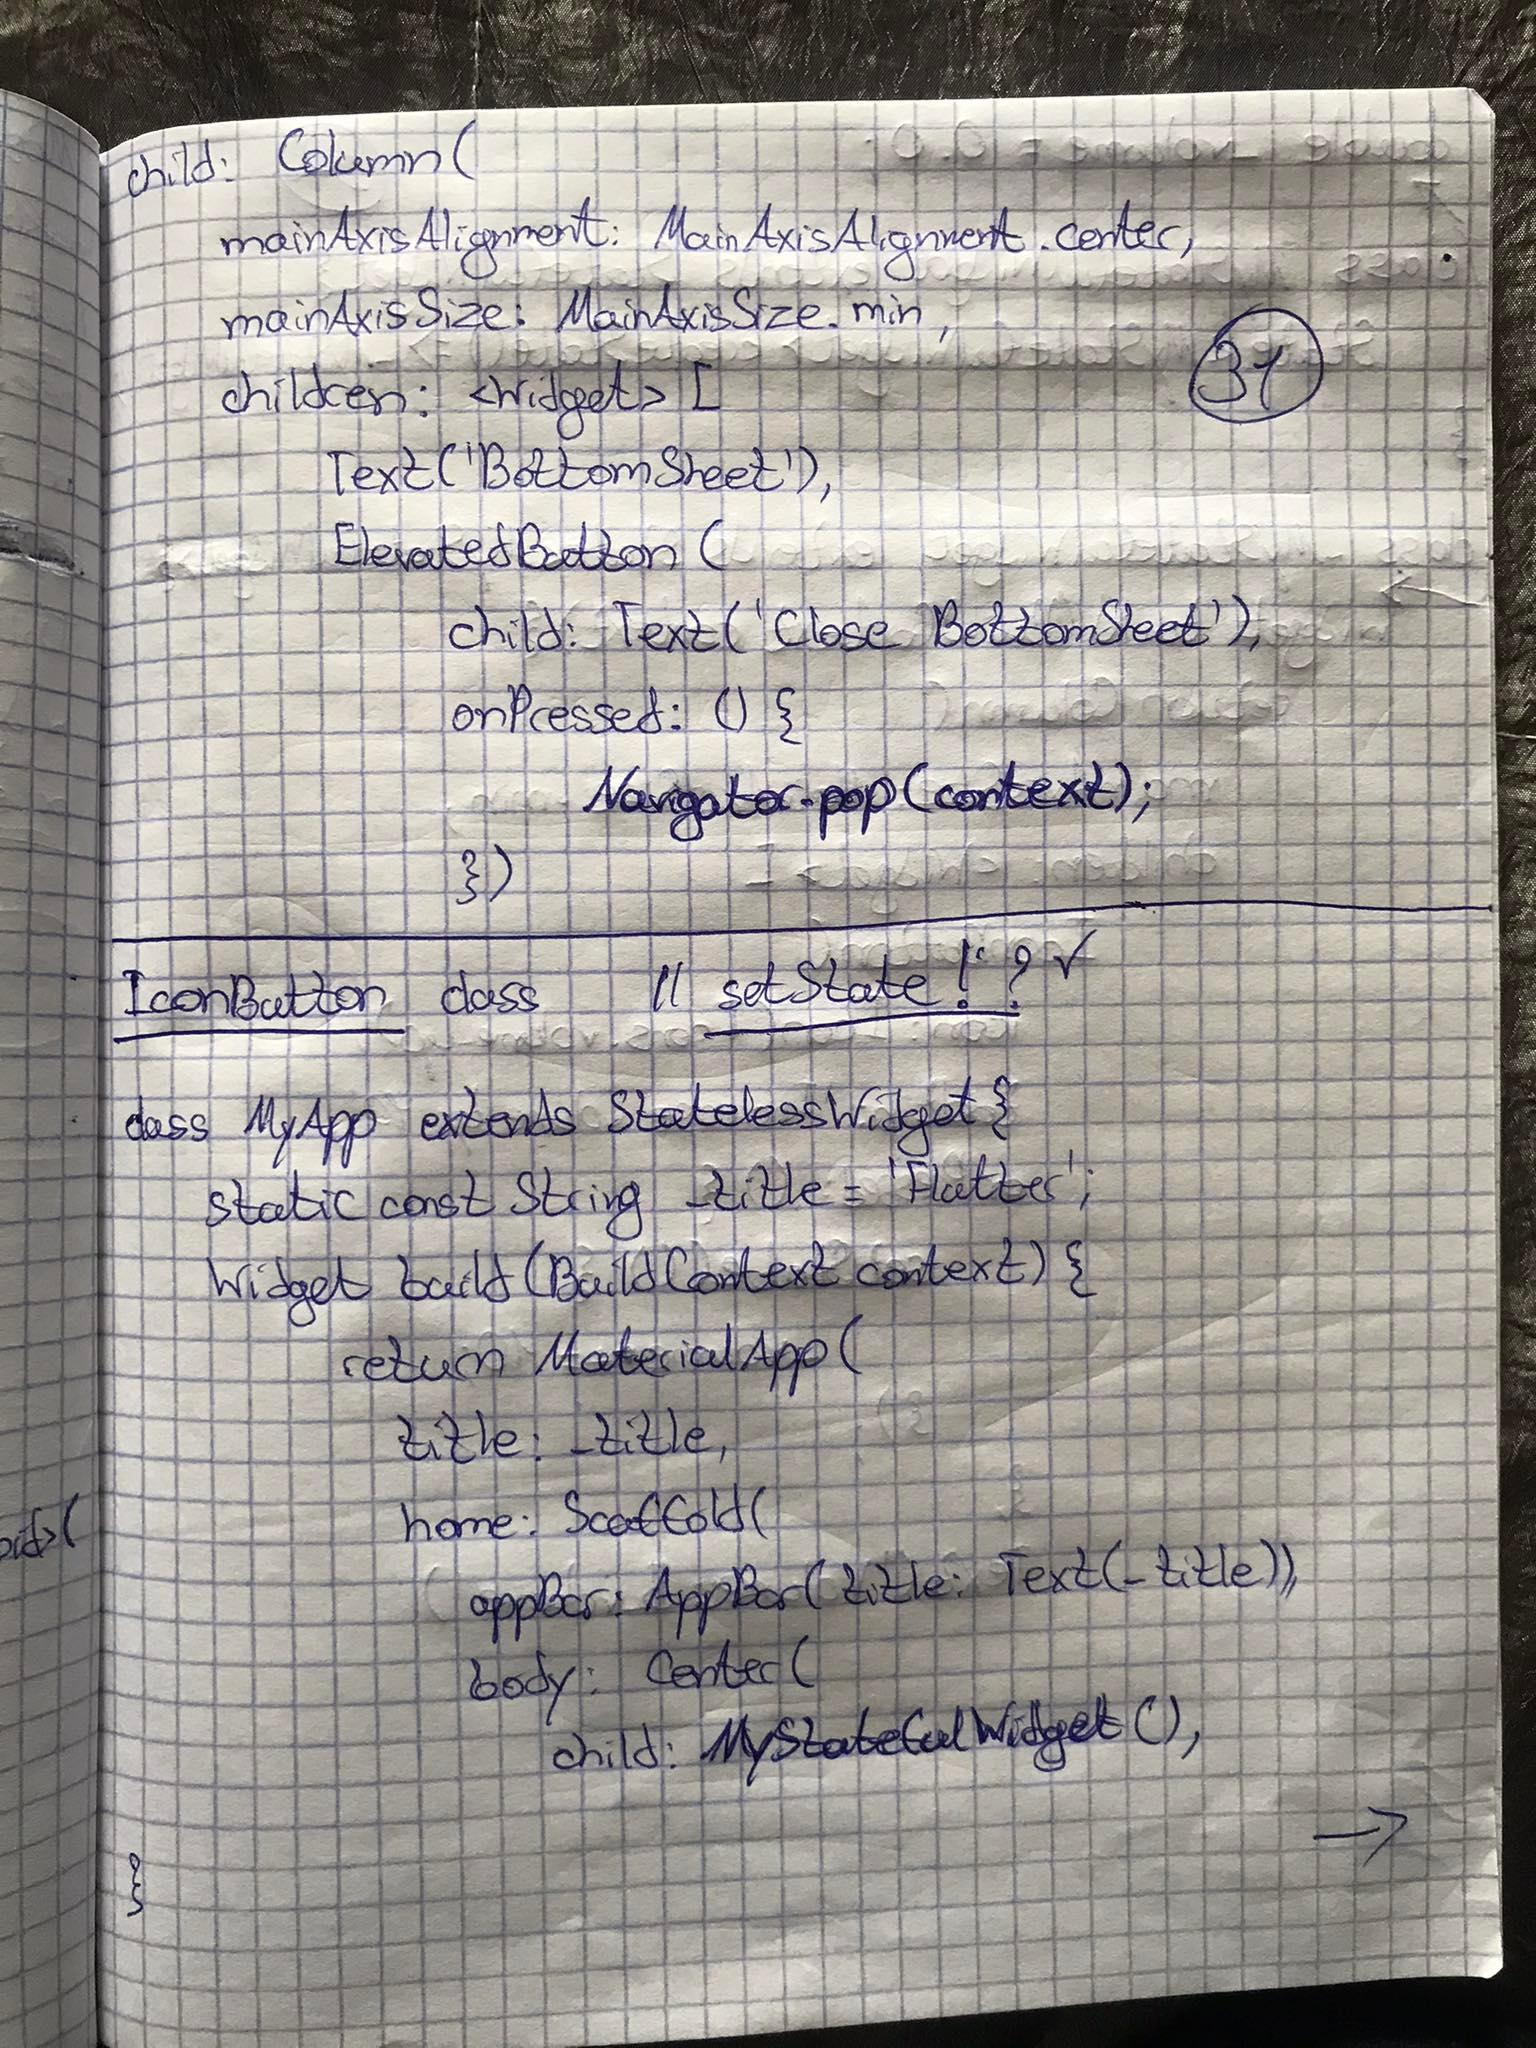 child: Column(
mainAxisAlignment: MainAxisAlignment.center,
mainAxisSize: MainAxisSize.min,
31
children: <Widget> [
Text('BottomSheet'),
ElevatedButton (
child: Text('Close BottomSheet'),
onPressed: () {
Navigator.pop(context);
})
IconButton class // setState!? ✓
class MyApp extends StatelessWidget{
static const String _title = 'Flutter';
Widget build(BuildContext context) {
return MaterialApp(
title: _title,
home: Scaffold(
appBar: AppBar( title: Text(_title)),
body: Center(
child: MyStatefulWidget(),
→
}